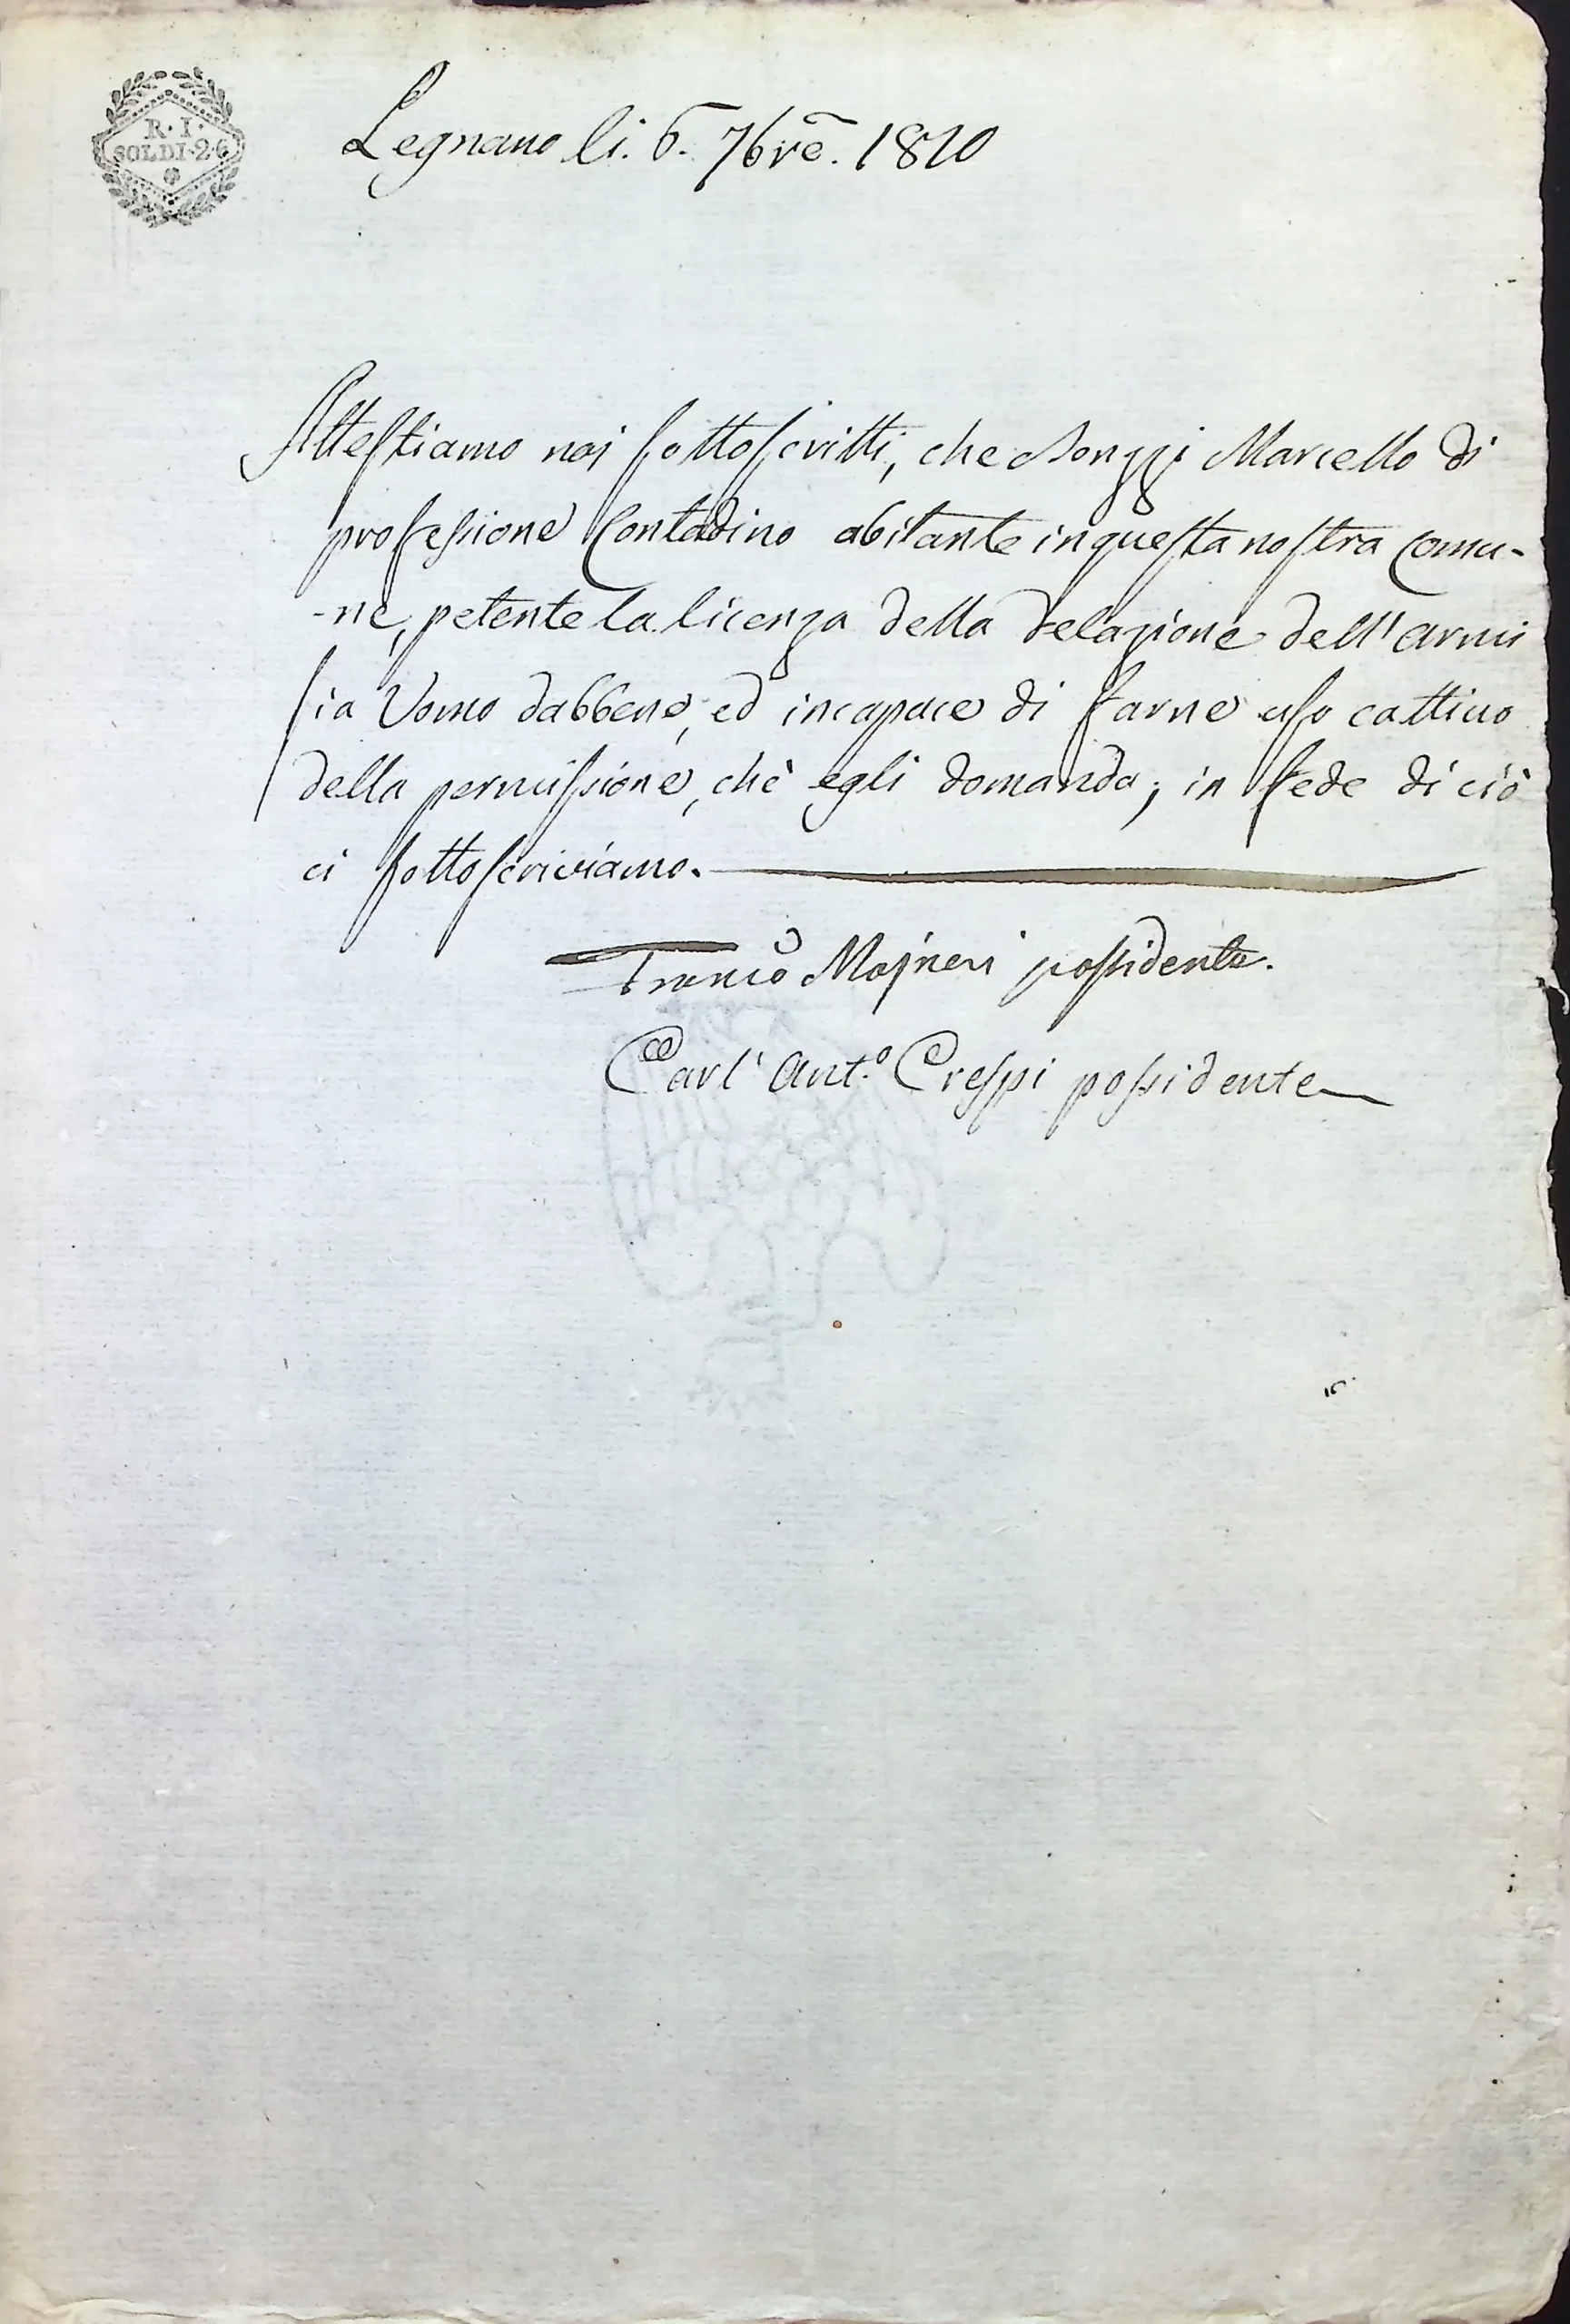 R. I.
SOLDI. 26
Legnano li. 6. 76re. 1810
Attestiamo noi sottoscritti, che Marcello di
professione Contadino abitante in questa nostra Comu-
-ne, petente la licenza della delazione dell'armi
sia Uomo dabbene, ed incapace di farne uso cattivo
della permissione, chè egli domanda; in fede di ciò
ci sottoscriviamo.
Franco Majneri possidente.
Carl' Ant.o Crespi possidente